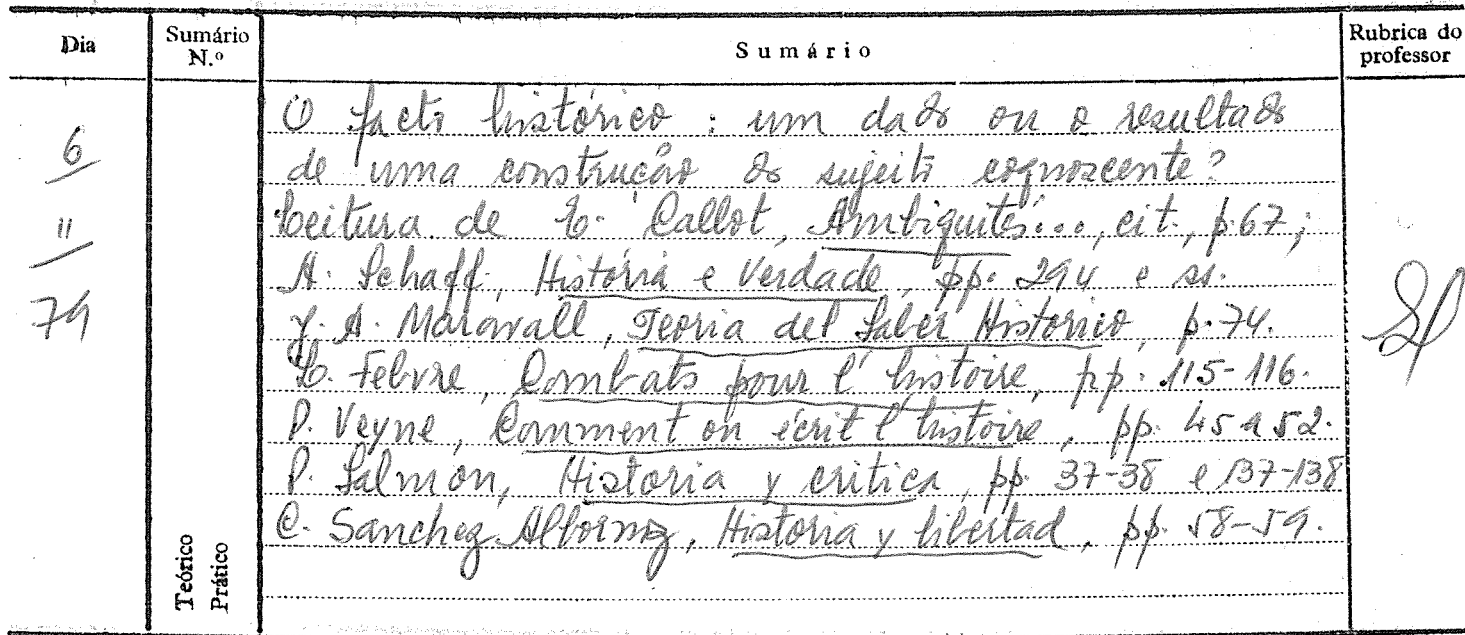 Dia
Sumário N.º
Sumário
Rubrica do professor
6
11
79
O facto histórico : um dado ou o resultado
de uma construção do sujeito cognoscente?
Leitura de E. Callot, Ambiguités..., cit., p. 67;
A. Schaff, História e Verdade, pp. 294 e ss.
J. A. Maravall, Teoria del Saber Historico, p. 74.
L. Febvre, Combats pour l'histoire, pp. 115-116.
P. Veyne, Comment on écrit l'histoire, pp. 45 a 52.
P. Salmon, Historia y critica, pp. 37-38 e 137-138
C. Sanchez Albornoz, Historia y libertad, pp. 58-59.
Teórico
Prático